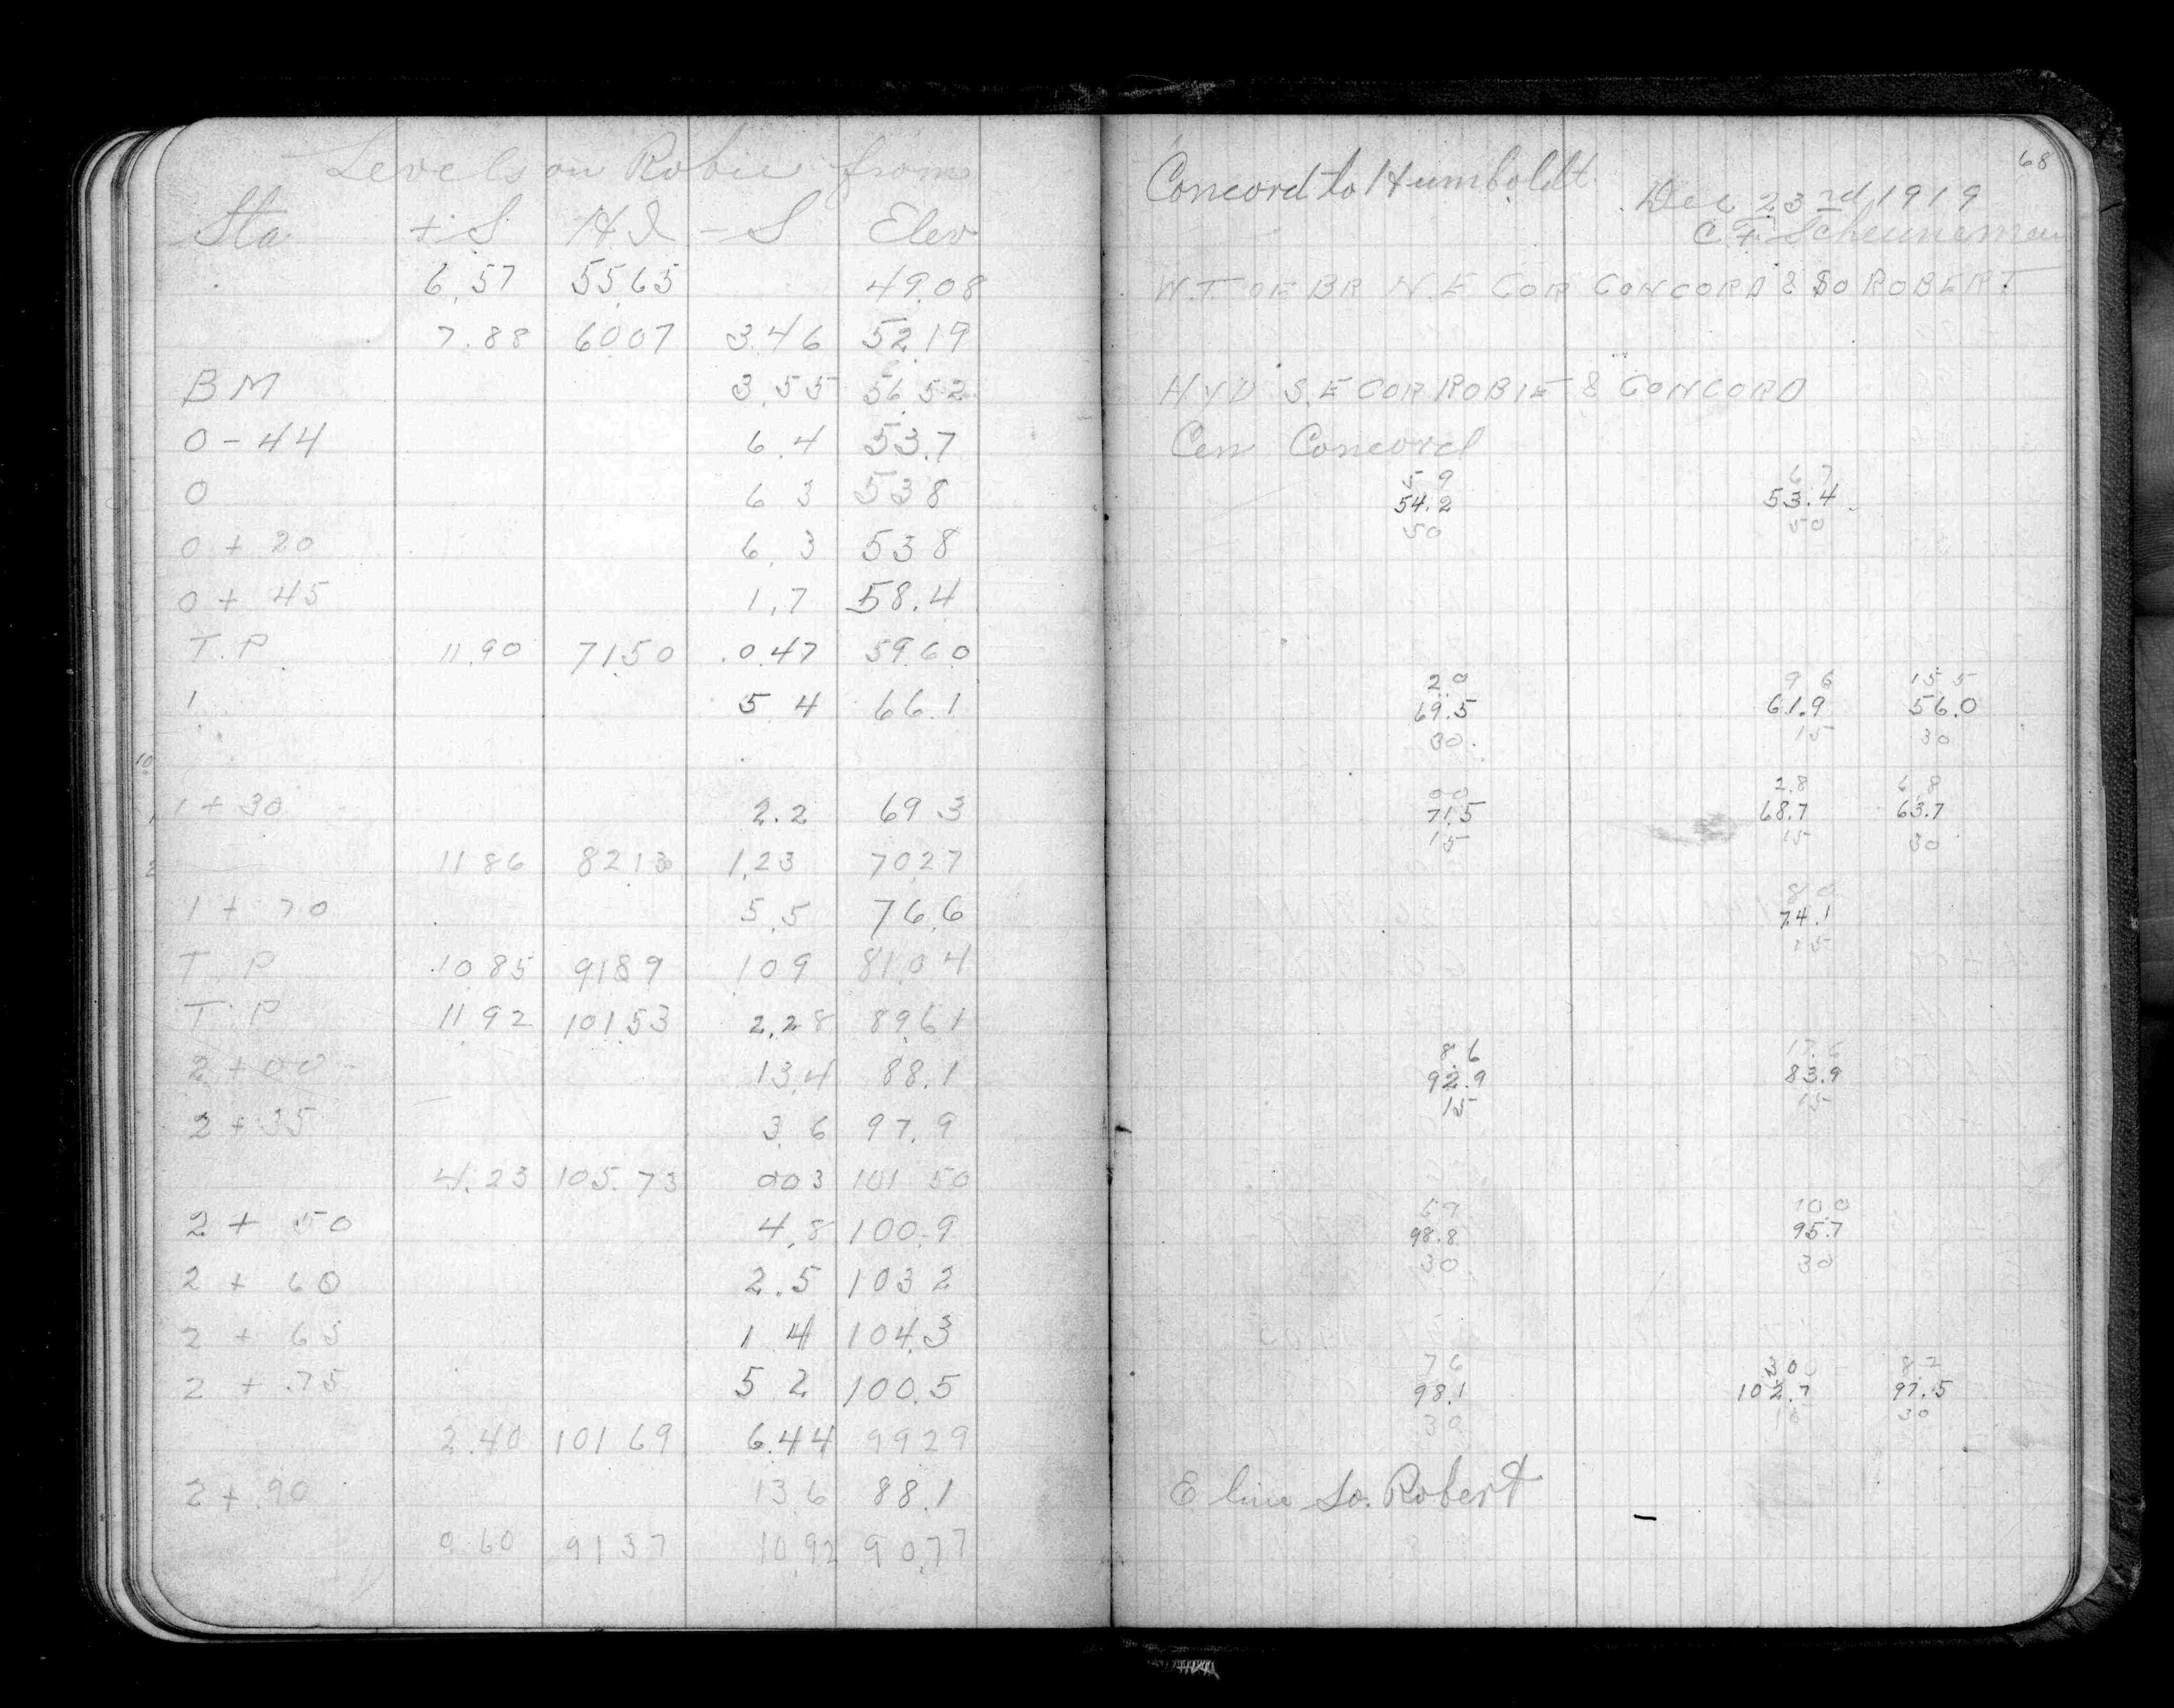 Levels on Robie from
Sta + S H I - S Elev
6.57 55.65 49.08
7.88 60.07 3.46 52.19
B M 3.55 56.52
0 - 44 6.4 53.7
0 6 3 53 8
0 + 20 6. 3 53 8
0 + 45 1.7 58.4
T. P. 11.90 71.50 .0.47 59.60
1 5 4 66.1
10
1 + 30 2.2 69 3
11 86 82.13 1.23 70.27
1 + 70 5.5 76.6
T. P 10.85 91.89 1 0 9 81.04
T. P 11 92 101.53 2.28 89.61
2 + 00 13.4 88.1
2 + 35 3. 6 97. 9
4.23 105.73 003 101 50
2 + 50 4.8 100.9
2 + 60 2.5 103 2
2 + 63 1 4 104.3
2 + .75 5 2 100.5
2.40 101 69 6.44 99 29
2 + 90 13 6 88.1
0.60 91 37 10.92 90.77
68
Concord to Humboldt
Dec 23rd 1919
C. F. Scheuneman
W.T. OF BR N.E COR CONCORD & SO ROBERT
HYD S.E COR ROBIE & CONCORD
Cen Concord
5 9 6 7
54.2 53.4
50 50
2 0 9 6 15 5
69.5 61.9 56.0
30. 15 30
00 2.8 6.8
71.5 68.7 63.7
15 15 30
8 0
74.1
15
8.6 17.6
92.9 83.9
15 15
6 9 10.0
98.8 95.7
30 30
7 6 3 0 8 2
98.1 102.7 97.5
30 15 30
E line So. Robert